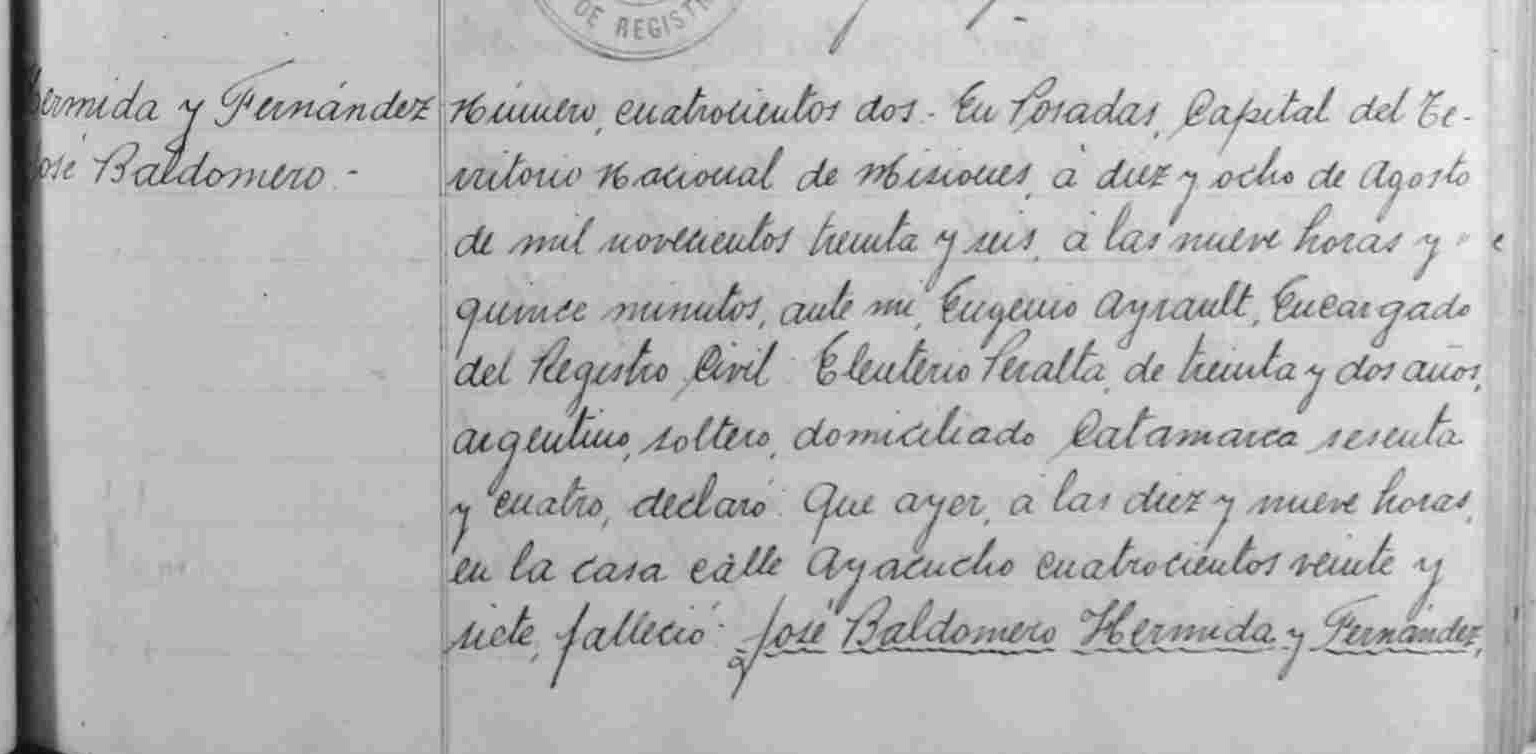 DE REGISTR
Hermida y Fernández
José Baldomero.-
Número, cuatrocientos dos.- En Posadas, Capital del Te-
rritorio Nacional de Misiones, á diez y ocho de Agosto
de mil novecientos treinta y seis, á las nueve horas y
quince minutos, ante mí, Eugenio Ayrault, Encargado
del Registro Civil: Eleuterio Peralta, de treinta y dos años,
argentino, soltero, domiciliado Catamarca sesenta
y cuatro, declaró: Que ayer, á las diez y nueve horas,
en la casa calle Ayacucho cuatrocientos veinte y
siete, falleció: José Baldomero Hermida y Fernández,